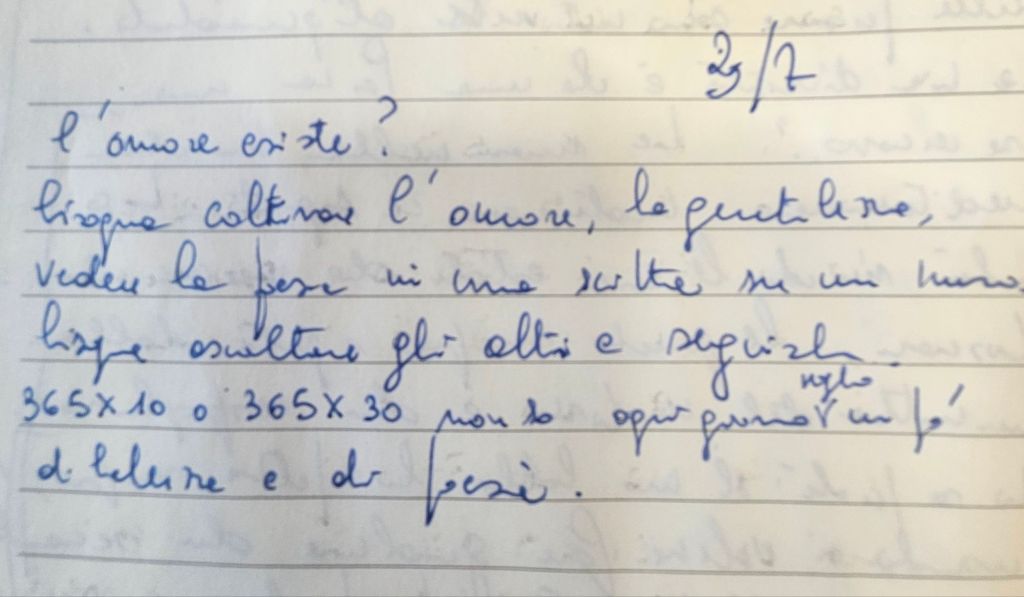 23/7
l'amore esiste?
bisogna coltivare l'amore, la gentilezza,
vedere la poesia in una scritta su un muro.
bisogna ascoltare gli altri e seguirli
365x10 o 365x30 non so ogni giorno voglio un pó
di bellezza e di poesia.